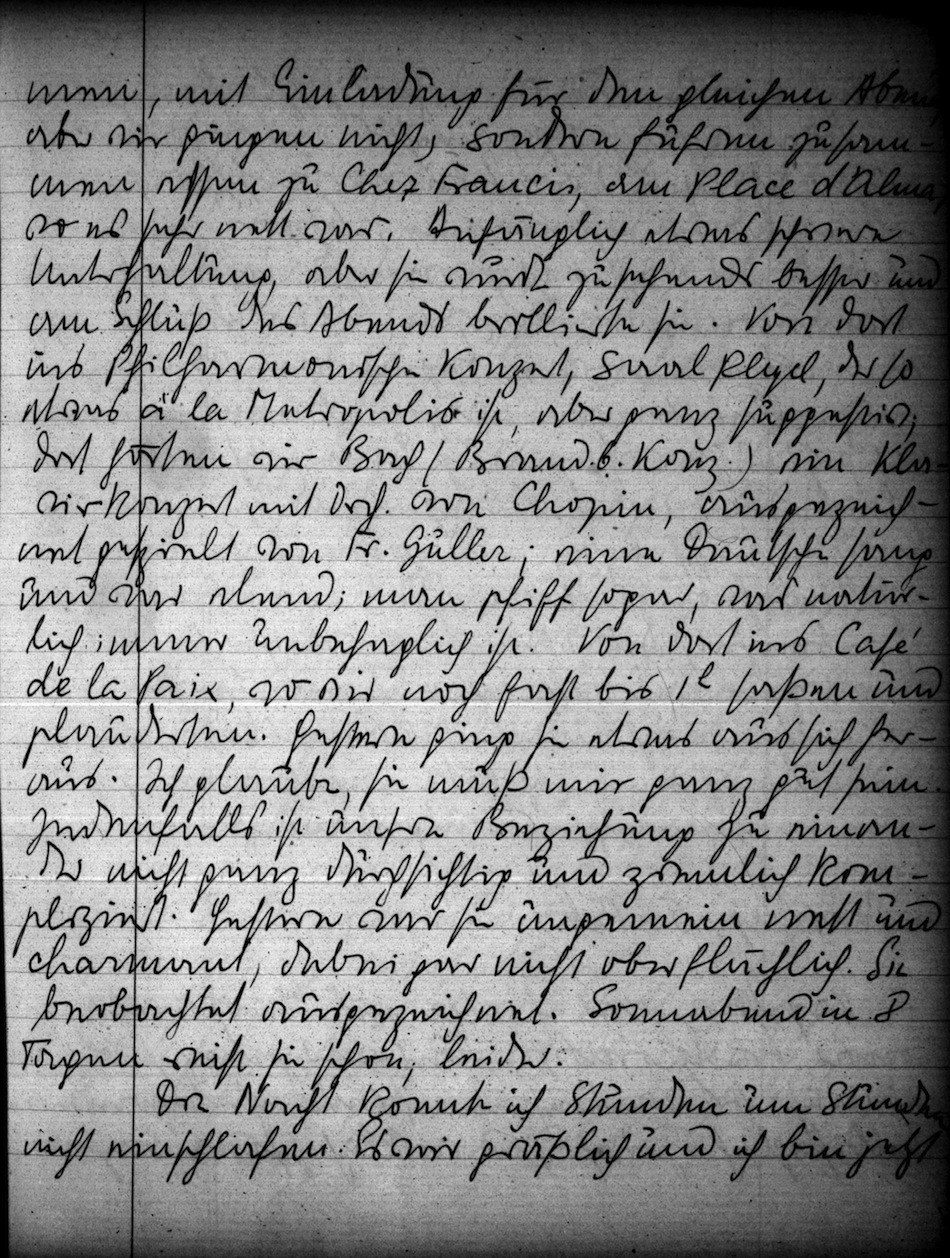 men, mit Einladung für den gleichen Abend
aber wir gingen nicht, sondern fuhren zusam-
men essen zu Chez Francis, am Place d'Alma,
wo es sehr nett war. Anfänglich etwas schwere
Unterhaltung, aber sie wurde zusehends besser und
am Schluß des Abends brillierte sie. Von dort
ins Philharmonische Konzert, Saal Pleyel, der so
etwas à la Metropolis ist, aber ganz suggestiv;
dort hörten wir Bach (Brand. 6. Konz.) ein Kla-
vierkonzert mit Orch. von Chopin, ausgezeich-
net gespielt von Fr. Guller; eine Deutsche sang
und war elend; man pfiff sogar, was natür-
lich immer unbehaglich ist. Von dort ins Café
de la Paix, wo wir noch fast bis 1h saßen und
plauderten. Gestern ging sie etwas aus sich her-
aus. Ich glaube, sie muß mir ganz gut sein.
Jedenfalls ist unsre Beziehung zu einan-
der nicht ganz durchsichtig und ziemlich kom-
pliziert. Gestern war sie ungemein nett und
charmant, dabei gar nicht oberflächlich. Sie
beobachtet ausgezeichnet. Sonnabend in 8
Tagen reist sie schon, leider.
Die Nacht konnte ich Stunden um Stunden
nicht einschlafen. Es war gräßlich und ich bin jetzt